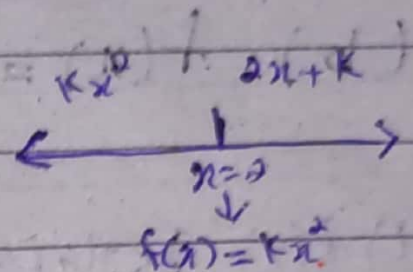 kx² 2x+k
x=2
↓
f(x)=kx²